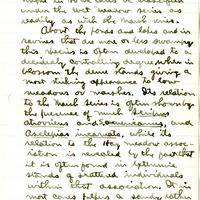 under the wet meadow series as
readily as with the marsh series.
About the ponds and holes and in
ravines that are more or less swampy
this species is often developed to a
decidedly controlling degree when in
blossom the dense stands giving a
most striking appearance to low
meadows or marshes. Its relation
to the marsh series is often shown by
the presence of much Scirpus
atrovirens and S. americanus, and
Asclepias incarnata, while its
relation to the Hay meadow assoc-
iation is revealed by the fact that
it is often found in extensive
stands of scattered individuals
within that association. It is
most cases before a sandy rather